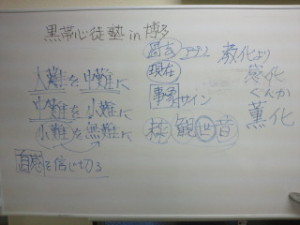 黒帯心徒塾 in 博多
大難を中難に
中難を小難に
小難を無難に
自惑を信じ切る
過去
現在
事象サイン
観世音
教化より
感化
くんか
薫化